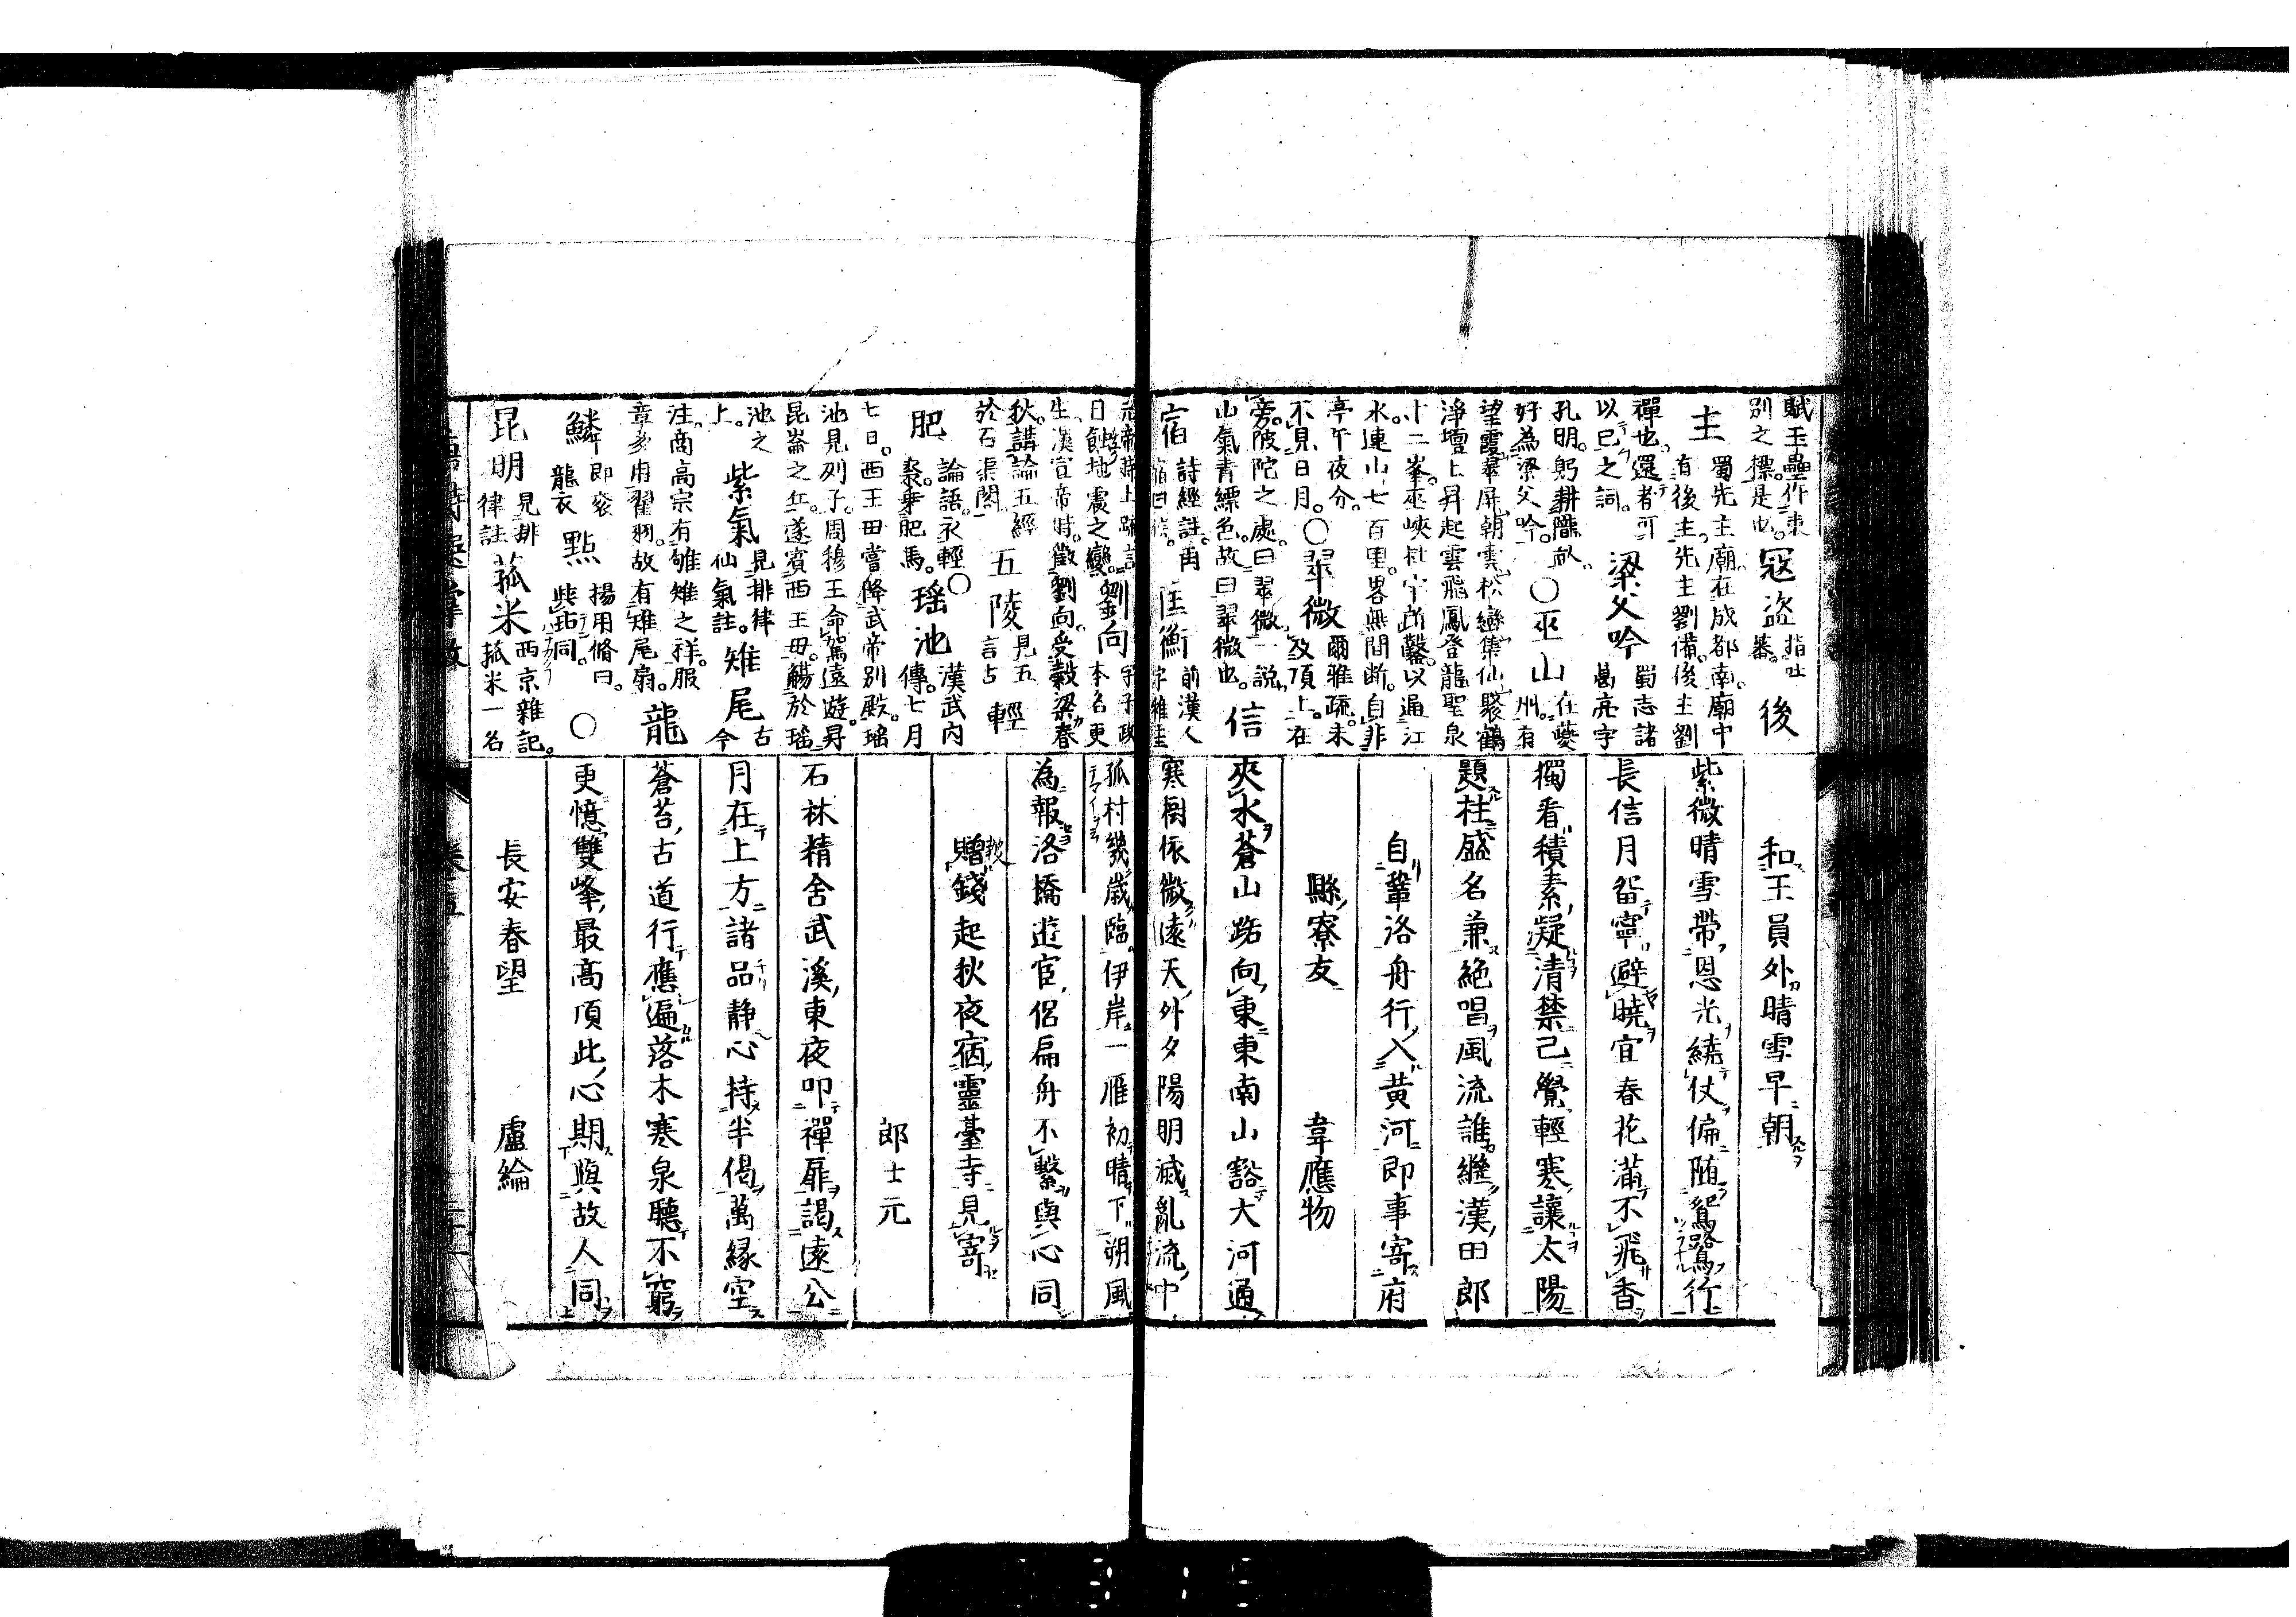 賦玉壘作東
別之標是也。
寇盜
指吐
蕃。
後
主
蜀先主廟。在成都南。廟中
有後主。先主劉備。後主劉
禪也。還者可
以已之詞。
梁父吟
蜀志諸
葛亮字
孔明。躬耕隴畝。
好為梁父吟。
○巫山
在夔
州。有
望霞翠屏朝雲松巒集仙聚鶴
淨壇上昇起雲飛鳳登龍聖泉
十二峯。巫峽杜宇所鑿。以通江
水。連山七百里。畧無間断。自非
亭午夜分。
不見日月。
○翠微
爾雅疏。未
及頂上。在
旁陂陀之處。曰翠微。一説
山氣青縹色。故曰翠微也。
信
宿
詩經註。再
宿曰信。
匡衡
前漢人
字稚圭
和王員外晴雪早朝
紫微晴雪帶恩光繞仗偏隨鴛鷺行
長信月留寧避曉宜春花滿不飛香
獨看積素凝清禁已覺輕寒讓太陽
題柱盛名兼絶唱風流誰繼漢田郎
自鞏洛舟行入黃河即事寄府
縣寮友
韋應物
夾水蒼山路向東東南山豁大河通
寒樹依微遠天外夕陽明滅亂流中
元帝時上疏言
日蝕地震之變。
劉向
字子政
本名更
生。漢宣帝時。徵劉向。受穀梁春
秋。講論五經
於石渠閣。
五陵
見五
言古
輕
肥
論語。衣輕
裘。乘肥馬。
○
瑶池
漢武内
傳。七月
七日。西王母嘗降武帝別殿。瑶
池見列子。周穆王命駕遠遊。昇
昆崙之丘。遂賓西王母。觴於瑶
池之
上。
紫氣
見排律
仙氣註。
雉尾
古
今
注。商高宗有雊雉之祥。服
章多用翟羽。故有雉尾扇。
龍
鱗
即袞
龍衣
點
揚用脩曰。
柴玷同。
○
昆明
見排
律註
菰米
西京雜記。
菰米一名
孤村幾歲臨伊岸一雁初晴下朔風
為報洛橋遊宦侶扁舟不繫與心同
贈錢起秋夜宿靈臺寺見寄
郎士元
石林精舍武溪東夜叩禪扉謁遠公
月在上方諸品静心持半偈萬縁空
蒼苔古道行應遍落木寒泉聽不窮
更憶雙峰最高頂此心期與故人同
長安春望
盧綸